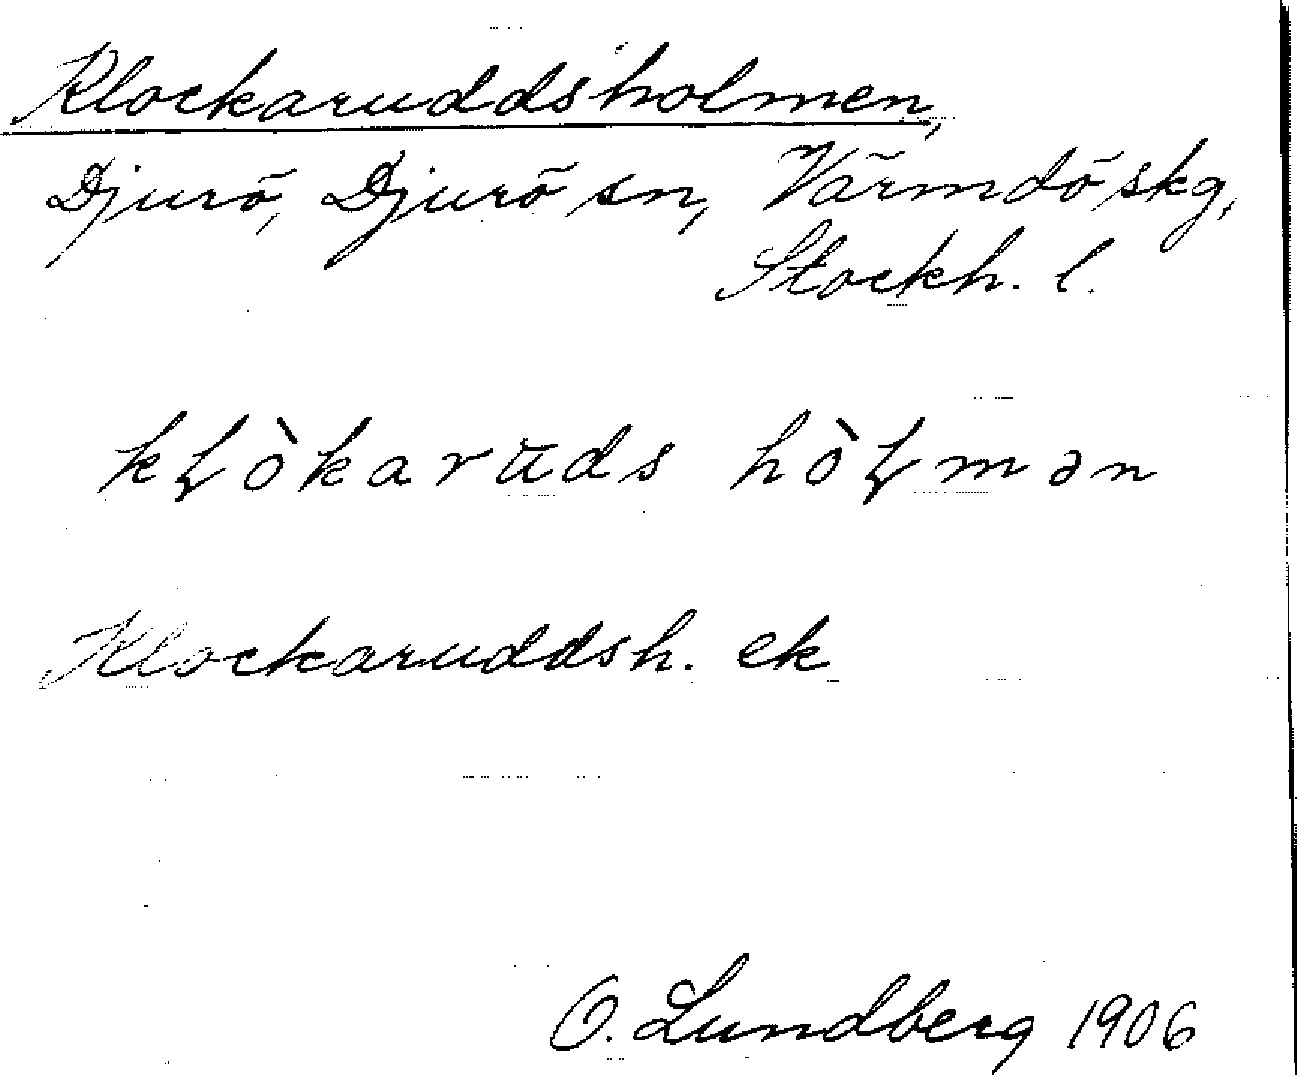 Klockaruddsholmen,
Djurö, Djurö sn, Värmdö skg,
Stockh. l.
kɽòkarūds hòɽmən
Klockaruddsh. ek
O. Lundberg 1906